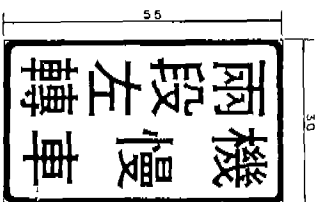 55
30
機慢車
兩段左轉